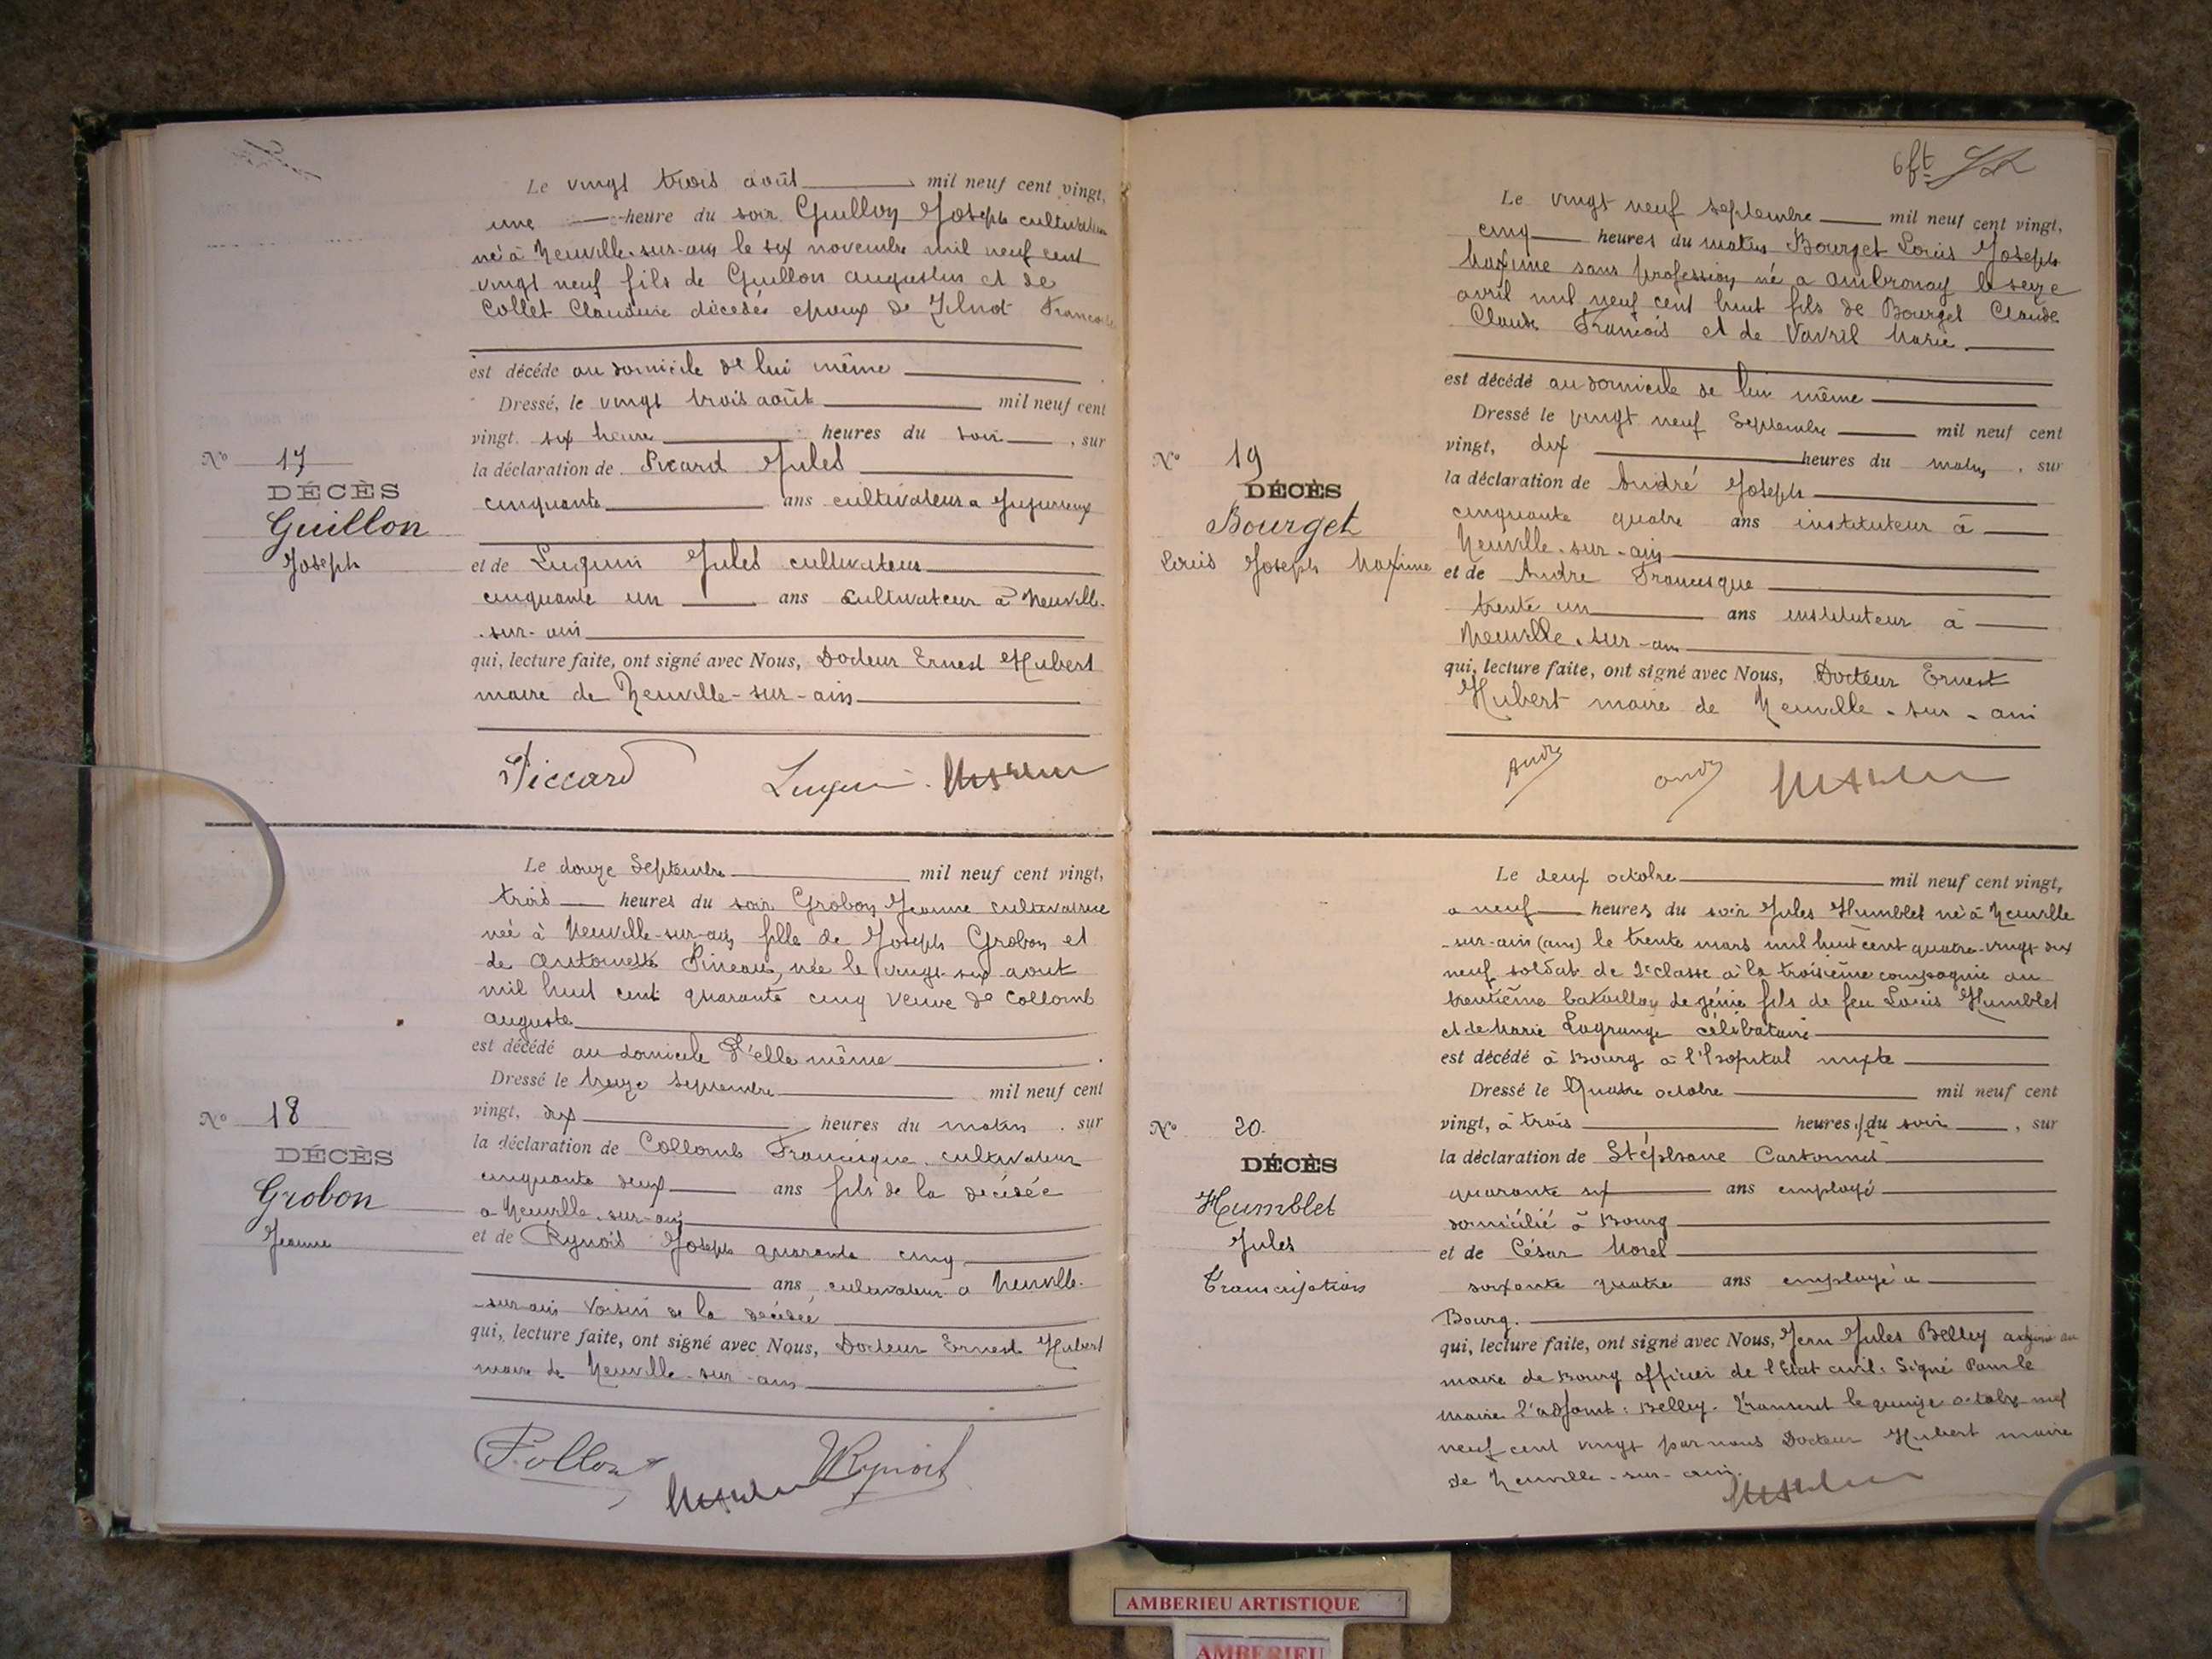 Le vingt trois août mil neuf cent vingt,
une heure du soir Guillon Joseph cultivateur
né à Neuville-sur-ain le six novembre mil neuf cent
vingt neuf fils de Guillon augustin et de
Collet Claudine décédés epoux de
est décédé au domicile de lui même
Dressé, le vingt trois août mil neuf cent
vingt. six heure heures du soir, sur
la déclaration de Picard Jules
cinquante ans cultivateur a Jujurieux
et de Luquin Jules cultivateur
cinquante un ans cultivateur à Neuville-
-sur-ain
qui, lecture faite, ont signé avec Nous, Docteur Ernest Hubert
maire de Neuville-sur-ain
Piccard Luquin
No 17
DÉCÈS
Guillon
Joseph
Le douze Septembre mil neuf cent vingt,
trois heures du soir Grobon Jeanne cultivatrice
née à Neuville-sur-ain fille de Joseph Grobon et
de Antoinette Pineau, née le vingt-six aout
mil huit cent quarante cinq veuve de Collomb
auguste
est décédé au domicile d'elle même
Dressé le treize Septembre mil neuf cent
vingt, dix heures du matin. sur
la déclaration de Collomb Francisque cultivateur
cinquante deux ans fils de la décédée
a Neuville-sur-ain
et de Rynois Joseph quarante cinq
ans cultivateur a Neuville-
-sur-ain Voisin de la décédée
qui, lecture faite, ont signé avec Nous, Docteur Ernest Hubert
maire de Neuville-sur-ain
No 18
DÉCÈS
Grobon
Jeanne
6ft
Le vingt neuf septembre mil neuf cent vingt,
cinq heures du matin Bourget Louis Joseph
Maxime sans profession né a ambronay le seize
avril mil neuf cent huit fils de Bourget Claude
Claude François et de Vavril Marie
est décédé au domicile de lui même
Dressé le vingt neuf Septembre mil neuf cent
vingt, dix heures du matin, sur
la déclaration de André Joseph
cinquante quatre ans instituteur à
Neuville-sur-ain
et de Andre Francisque
trente un ans instituteur à
Neuville-sur-ain
qui, lecture faite, ont signé avec Nous, Docteur Ernest
Hubert maire de Neuville-sur-ain
No 19
DÉCÈS
Bourget
Louis Joseph Maxime
Le deux octobre mil neuf cent vingt,
a neuf heures du soir Jules Humblet né à Neuville
-sur-ain (ain) le trente mars mil huit cent quatre-vingt dix
neuf soldat de 2e classe à la troisième compagnie du
trentième bataillon de génie fils de feu Louis Humblet
et de Marie Lagrange célibataire
est décédé à Bourg à l'hopital mixte
Dressé le Quatre octobre mil neuf cent
vingt, à trois heures du soir, sur
la déclaration de Stéphane Cartonnet
quarante six ans employé
domicilié à Bourg
et de César Morel
soixante quatre ans employé a
Bourg.
qui, lecture faite, ont signé avec Nous, Jean Jules Belley adjoint au
maire de Bourg officier de l'Etat civil. Signé Pour le
maire l'adjoint: Belley. Transcrit le quinze octobre mil
neuf cent vingt par nous Docteur Hubert maire
de Neuville-sur-ain.
No 20.
DÉCÈS
Humblet
Jules
Transcription
AMBERIEU ARTISTIQUE
AMBERIEU